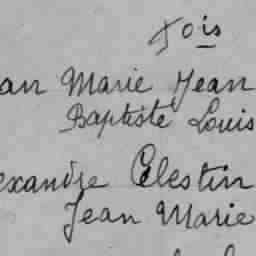 fois
an Marie Jean
Baptiste Louis
exandre Célestin
Jean Marie